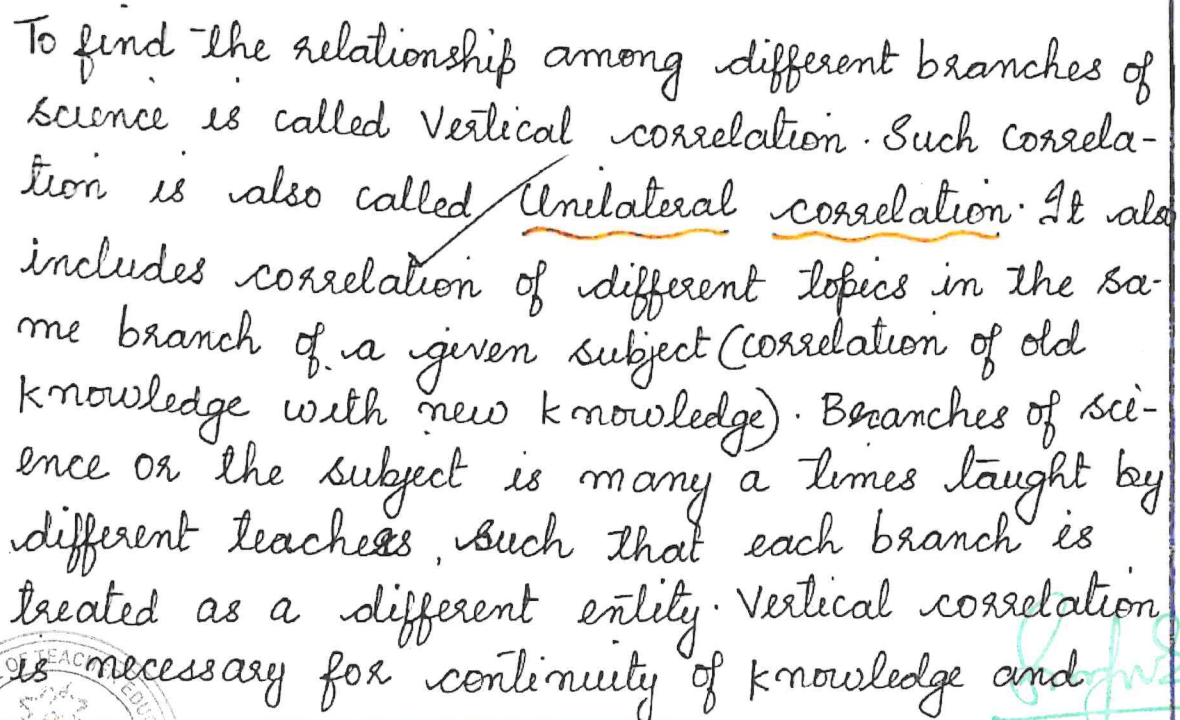 To find the relationship among different branches of
science is called Vertical correlation. Such correla-
tion is also called Unilateral correlation. It also
includes correlation of different topics in the sa-
me branch of a given subject (correlation of old
knowledge with new knowledge). Branches of sci-
ence or the subject is many a times taught by
different teachers, such that each branch is
treated as a different entity. Vertical correlation
is necessary for continuity of knowledge and
OF TEAC EDU